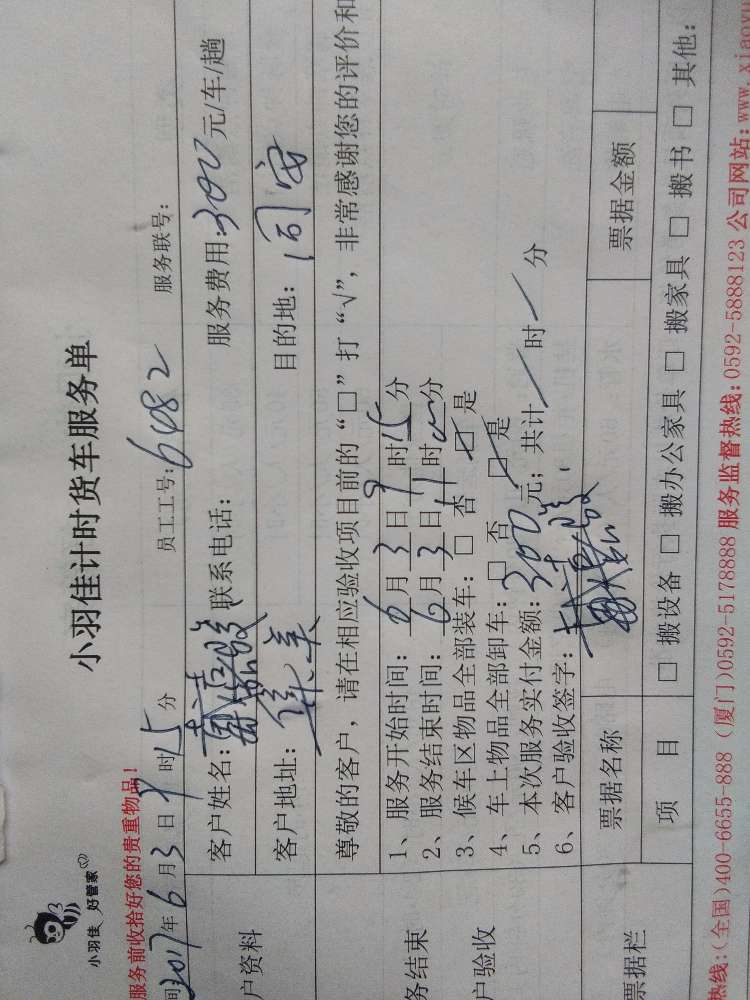 小羽佳 好管家
小羽佳计时货车服务单
服务前收拾好您的贵重物品！
间2017年6月3日9时15分 员工工号：6482 服务联号：
户资料
客户姓名： 联系电话： 服务费用300元/车/趟
客户地址：集美 目的地：同安
尊敬的客户，请在相应验收项目前的“□”打“√”，非常感谢您的评价和
务结束
户验收
1、服务开始时间：6月3日9时15分
2、服务结束时间：6月3日11时分
3、候车区物品全部装车：□ 否 ☑ 是
4、车上物品全部卸车：□ 否 ☑ 是
5、本次服务实付金额：300元；共计/时/分
6、客户验收签字：
票据栏
票据名称 票据金额
项 目 □ 搬设备 □ 搬办公家具 □ 搬家具 □ 搬书 □ 其他：
热线：（全国）400-6655-888（厦门）0592-5178888 服务监督热线：0592-5888123 公司网站：www.xiaoyu